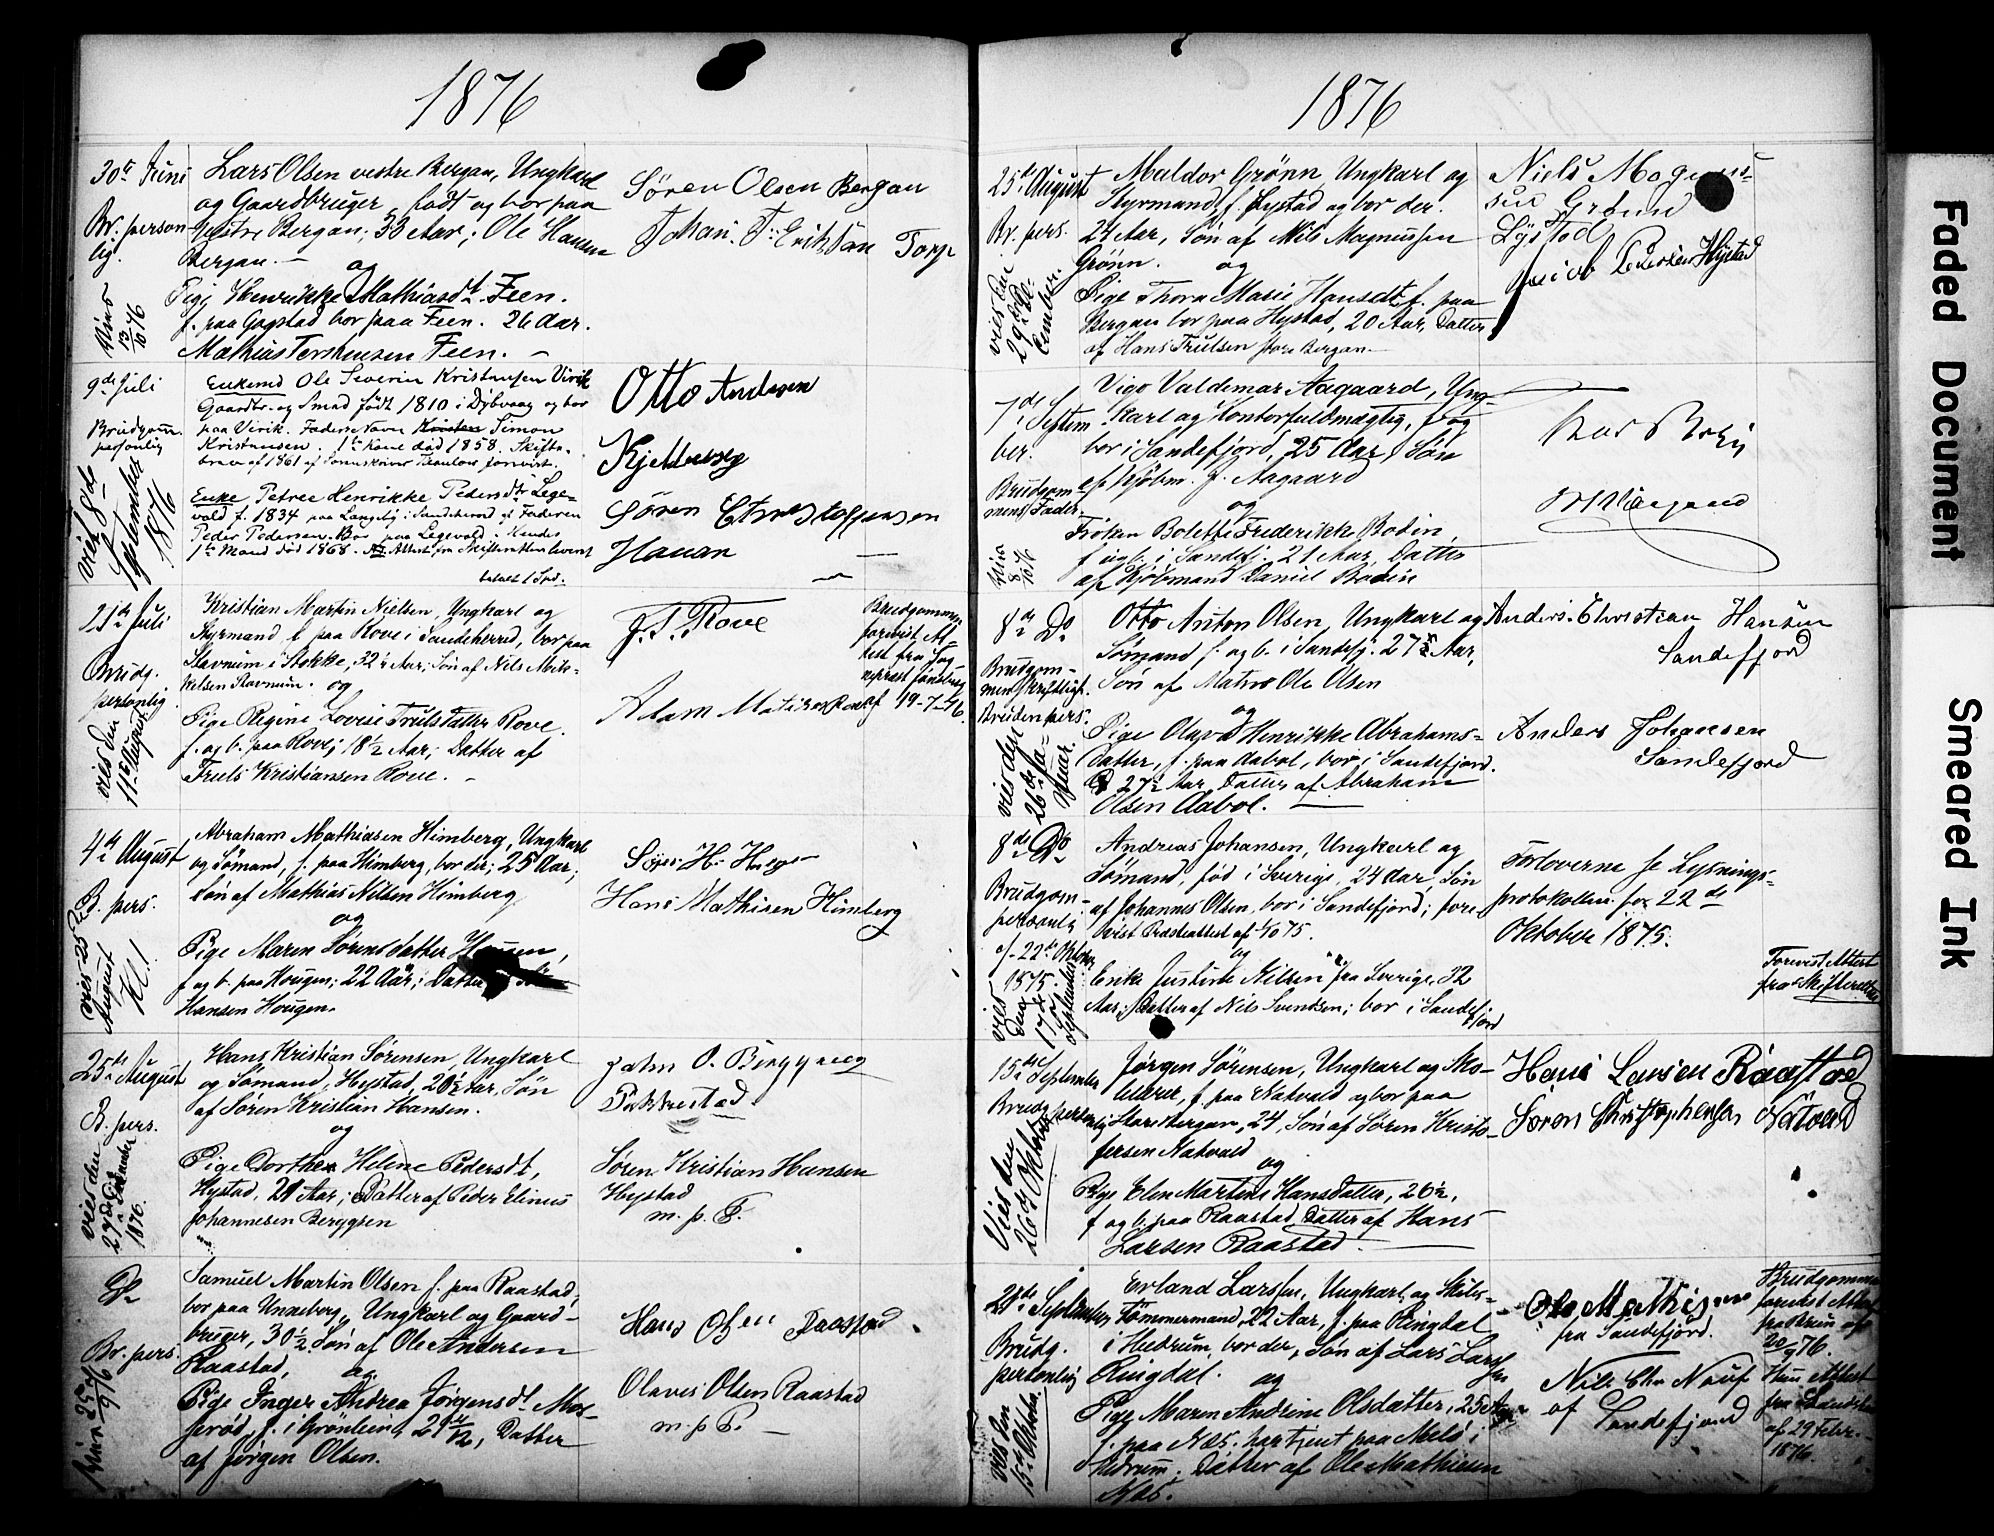 1876
30te Juni
Br. person-
lig.
Viet
13/10 76
Lars Olsen vestre Bergan, Ungkarl
og Gaardbruger, født og bor paa
Vestre Bergan; 33 Aar; Ole Hansen
Bergan. —
og
Pige Henrikke Mathiasdt. Feen.
f. paa Gogstad bor paa Feen. 26 Aar.
Mathias Feen. —
Søren Olsen Bergan
Johan Eriksen Torp
9de Juli
Brudgom.
personlig
viet 8de
September
1876
Enkemd Ole Severin Kristensen Virik
Gaardbr. og Smed født 1810 i Dybvaag og bor
paa Virik. Faderens Navn Simon
Kristensen. 1te Kone død 1858. Skifte-
brev af 1861 af
Enke Petree Henrikke Pedersdtr Lege-
vold f. 1834 paa i Sandeherred af Faderen
Peder Pedersen. Bor paa Legevold. Hendes
1te Mand død 1868. Attest fra Skifteretten leveret
betalt 1 Spd.
Otto Andersen
Kjeldberg
Søren Christoffersen
Hauan
21de Juli
Brudg.
personlig
vies den
11te August
Kristian Martin Nielsen, Ungkarl og
Styrmand f. paa Rove i Sandeherred, bor paa
Stavnum i Stokke, 32½ Aar; Søn af Nils Mik-
kelsen Stavnum. og
Pige Regine Lovise Trulsdatter Rove.
f. og b. paa Rove; 18½ Aar; Datter af
Truls Kristiansen Rove. —
J. T. Rove
Adam
Brudgommen
forevist At-
test fra Sog-
nepræst
af 19-7-76.
4de August
B. pers.
vies 25de
August
Kl. 1
Abraham Mathiasen Himberg, Ungkarl
og Sømand, f. paa Himberg, bor der; 25 Aar;
Søn af Mathias Nilsen Himberg
og
Pige Maren Sørensdatter
f og b. paa Hougen; 22 Aar; Datter
Hansen Hougen.
Hans Mathisen Himberg
25de August
B. pers.
vies den
29de December
1876.
Hans Kristian Sørensen, Ungkarl
og Sømand, Hystad, 20½ Aar, Søn
af Søren Kristian Hansen.
og
Pige Dorthea Helene Pedersdt,
Hystad, 21 Aar; Datter af Peder Elinus
Johannesen Bergygsen
John O. Bergyneeg
Pukkestad
Søren Kristian Hansen
Hystad
m. p. P.
Do
Br. pers.
Samuel Martin Olsen f. paa Raastad,
bor paa Unneberg, Ungkarl og Gaard-
bruger, 30½ Søn af Ole Andersen
Raastad,
og
Pige Inger Andrea Jørgensdt. Mos-
serød, f. i Grønlein, Datter
af Jørgen Olsen.
Hans Olsen Raastad
Olaves Olsen Raastad
m. p. P. —
1876
25de August
Br. pers.
vies den
29de De-
cember.
Maldor Grønn Ungkarl og
Styrmand, f. Lystad og bor der.
24 Aar, Søn af Nils Magnussen
Grønn. og
Pige Thora Marie Hansdt, f. paa
Bergan bor paa Hystad, 20 Aar, Datter
af Hans Trulsen store Bergan. —
Niels Magnus-
sen Grønn
Lystad
Jacob Pedersen Hystad
7de Septem
ber.
Brudgom-
mens Fader.
Viet
8/10 76
Vigo Valdemar Aagaard, Ung-
karl og Kontorfuldmægtig, f og
bor i Sandefjord, 25 Aar, Søn
af Kjøbm. J. Aagaard
og
Frøken Bolette Frederikke Bodin,
f og b. i Sandefj. 21 Aar, Datter
af Kjøbmand Daniel Bodin
8de Do
Brudgom-
men skriftligt.
Bruden pers.
vies den
26de Ja-
nuar.
Otto Anton Olsen, Ungkarl og
Sømand, f. og b. i Sandefj. 27½ Aar,
Søn af Matros Ole Olsen
og
Pige Olava Henrikke Abrahams-
datter, f. paa Aabol, bor i Sandefjord.
27½ Aar, Datter af Abraham
Olsen Aabol. —
Anders Christian Hansen
Sandefjord
Anders Johansen
Sandefjord
8de Do
Brudgom-
personlig
af 22de Oktober
1875.
vies
den
17de
September
Andreas Johansen, Ungkarl og
Sømand, fød i Sverige, 24 Aar, Søn
af Johannes Olsen, bor i Sandefjord; fore-
vist Præsteattest af
og
Enke Justine Nilsen fra Sverige, 32
Aar, Datter af Nils Svendsen; bor i Sandefjord
Forloverne se Lysnings-
protokollen for 22de
Oktober 1875.
Forevist Attest
fra Skifteretten
15de September
Brudg. personlig
Vies den
26de Oktober
Jørgen Sørensen, Ungkarl og Sko-
f. paa Natvald og bor paa
Store Bergan, 24, Søn af Søren Kristo-
fersen Natvald
og
Pige Elen Martine Hansdatter, 26½,
f og b. paa Raastad, Datter af Hans
Larsen Raastad. —
Hans Larsen Raastad
Søren Christophersen Natvald
September
Brudg.
personlig
vies den
15de Oktober
Erland Larssen, Ungkarl og Skibs-
Tømmermand, 22 Aar, f. paa Ringdal
i Hedrum, bor der, Søn af Lars Larssen
Ringdal. og
Pige Maren Andrine Olsdatter, 25 Aar
f. paa Næs. har tjent paa Melø i
Hedrum. Datter af Ole Mathisen
Næs.
Ole Mathisen
fra Sandefjord.
Nils Chr Nauf
af Sandefjord
Brudgommen
forevist Attest
20/9 76.
Hun Attest
af 29 Febr.
1876.
Faded Document
Smeared Ink